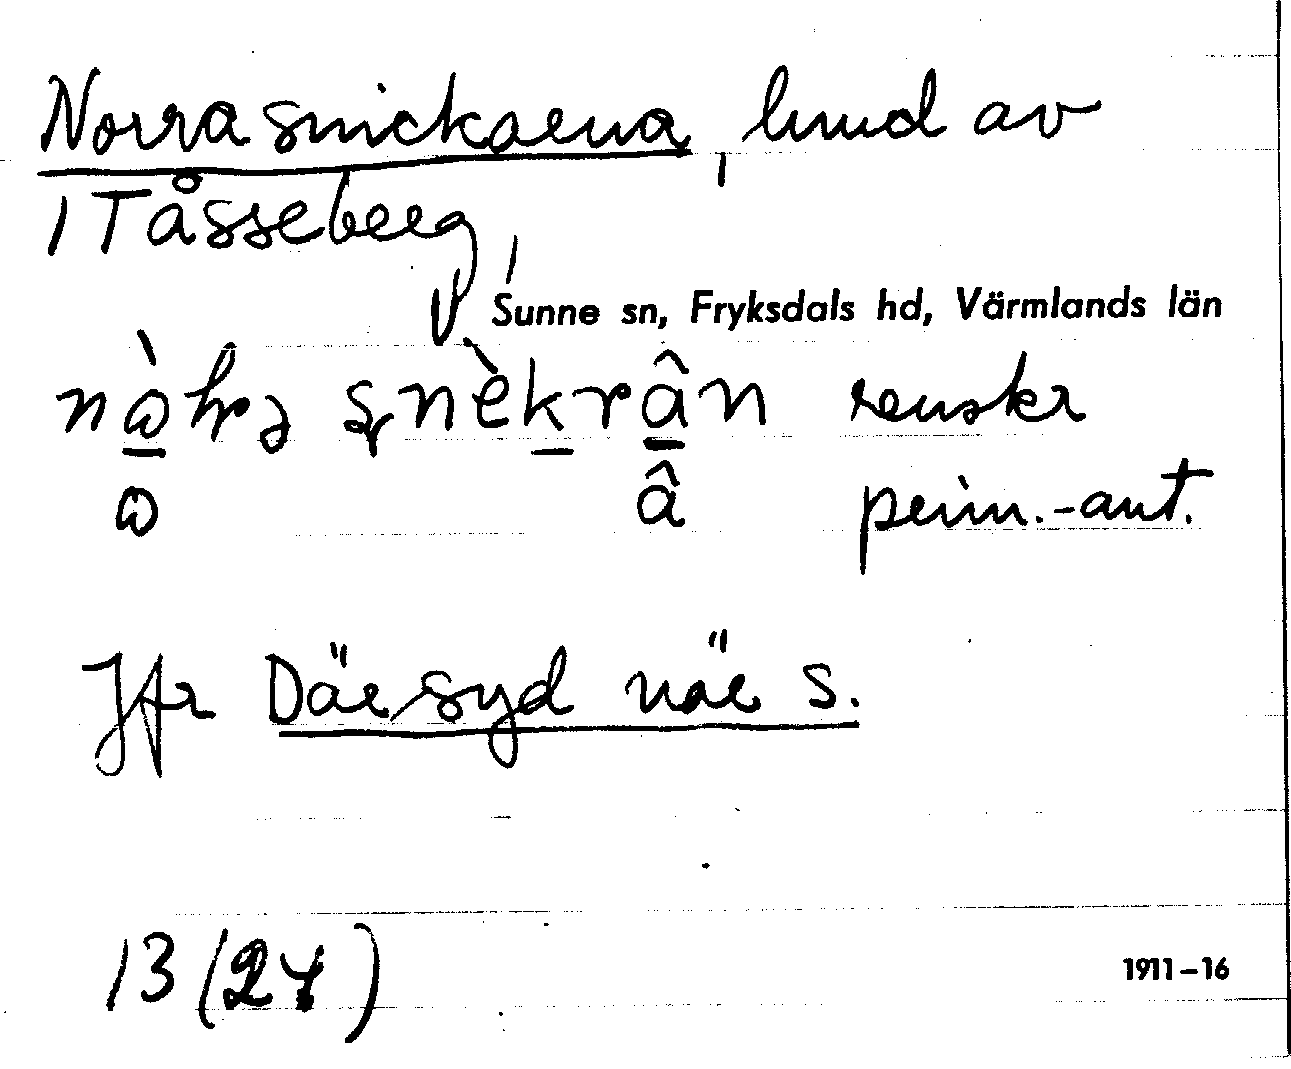 Norra snickarna, hmd av
1 Tåsseberg,
V. Sunne sn, Fryksdals hd, Värmlands län
renskr
prim.-ant.
Jfr Där syd när s.
13 (27)
1911–16